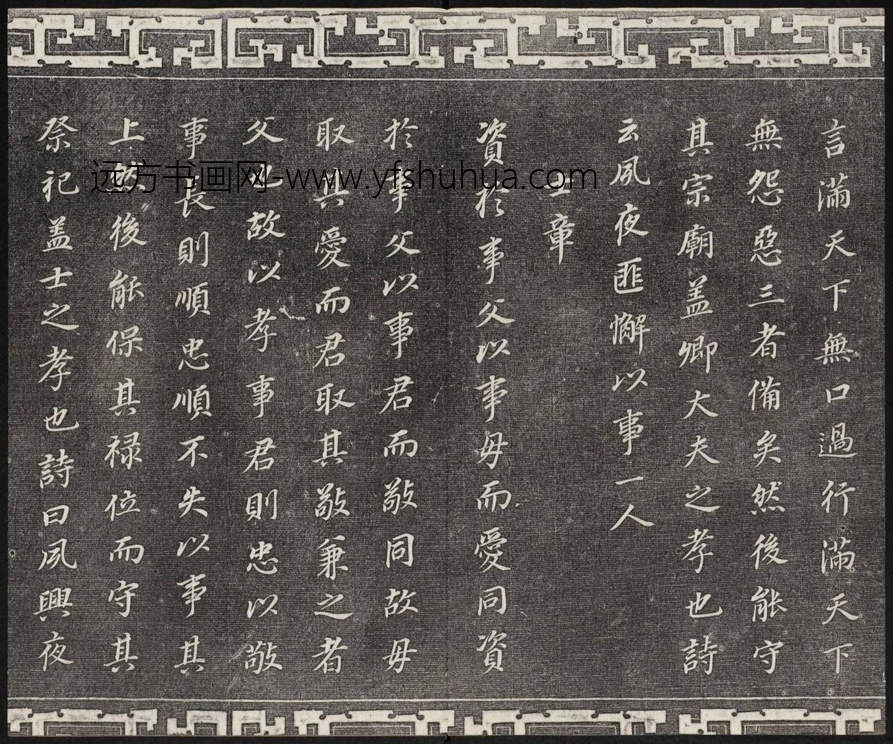 言滿天下無口過行滿天下
無怨惡三者備矣然後能守
其宗廟盖卿大夫之孝也詩
云夙夜匪懈以事一人
士章
資於事父以事母而愛同資
於事父以事君而敬同故母
取其愛而君取其敬兼之者
父也故以孝事君則忠以敬
事長則順忠順不失以事其
上然後能保其禄位而守其
祭祀盖士之孝也詩曰夙興夜
远方书画网-www.yfshuhua.com